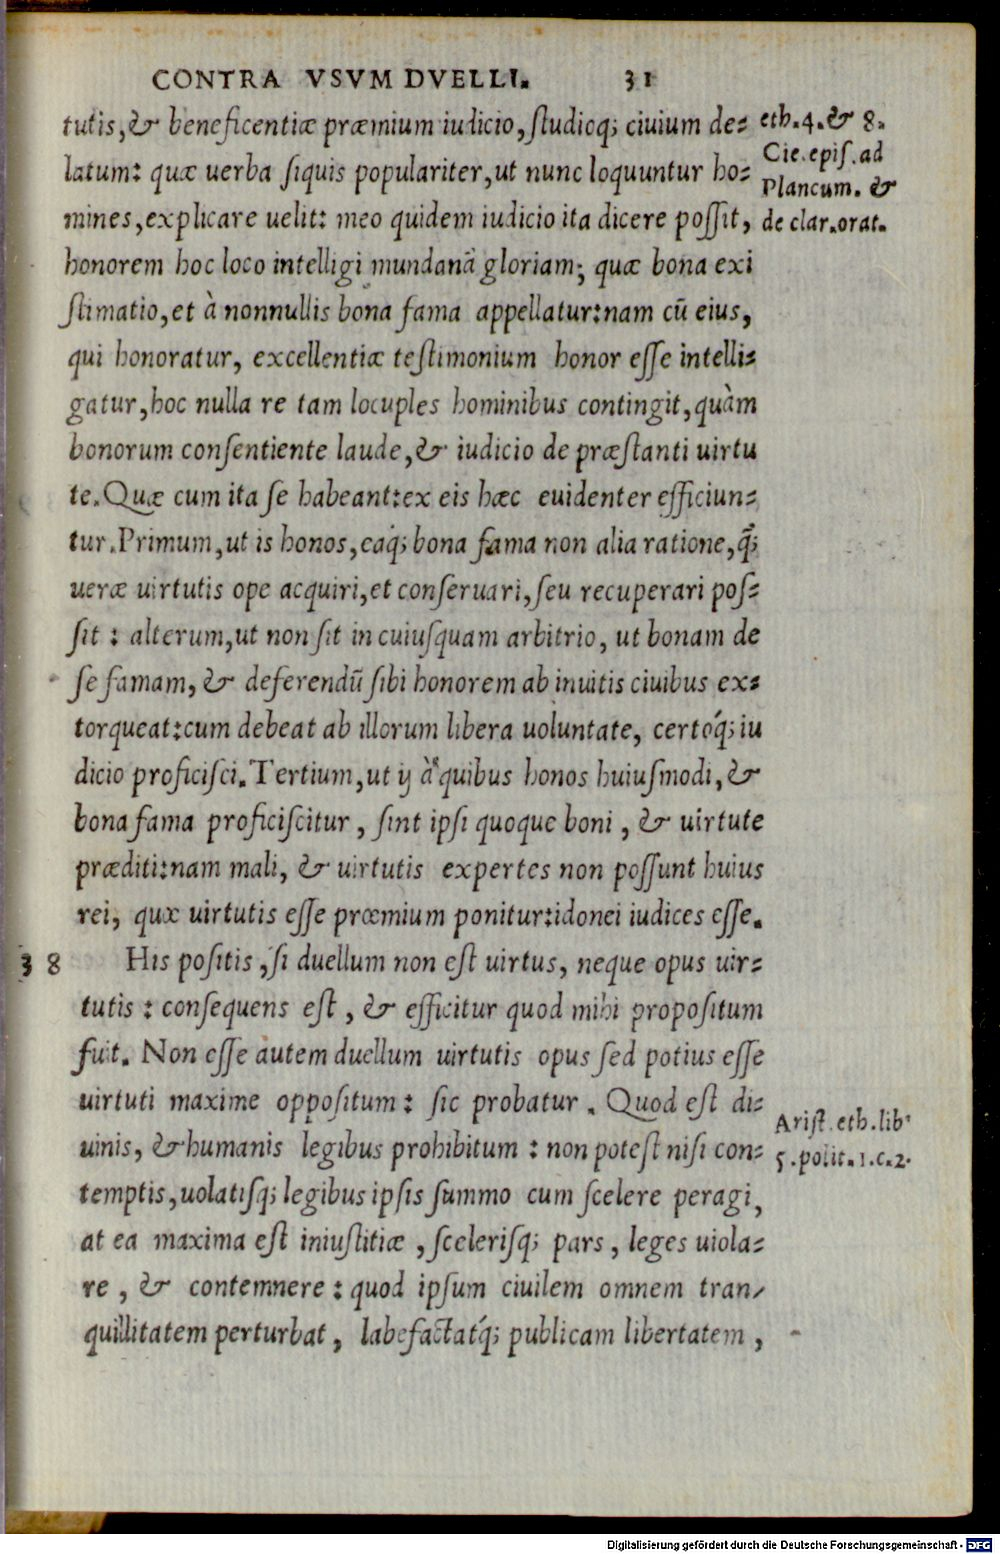 CONTRA VSVM DVELLI. 31
tutis, & beneficentiæ præmium iudicio, ſtudioq; ciuium de=
latum: quæ uerba ſiquis populariter, ut nunc loquuntur ho=
mines, explicare uelit: meo quidem iudicio ita dicere poſſit,
honorem hoc loco intelligi mundanã gloriam; quæ bona exi
ſtimatio, et à nonnullis bona fama appellatur: nam cũ eius,
qui honoratur, excellentiæ teſtimonium honor eſſe intelli=
gatur, hoc nulla re tam locuples hominibus contingit, quàm
bonorum conſentiente laude, & iudicio de præſtanti uirtu
te. Quæ cum ita ſe habeant: ex eis hæc euidenter efficiun=
tur. Primum, ut is honos, eaq́; bona fama non alia ratione, q̃;
ueræ uirtutis ope acquiri, et conſeruari, ſeu recuperari poſ=
ſit : alterum, ut non ſit in cuiuſquam arbitrio, ut bonam de
ſe famam, & deferendũ ſibi honorem ab inuitis ciuibus ex=
torqueat: cum debeat ab illorum libera uoluntate, certoq́; iu
dicio proficiſci. Tertium, ut ij à quibus honos huiuſmodi, &
bona fama proficiſcitur, ſint ipſi quoque boni, & uirtute
præditi: nam mali, & uirtutis expertes non poſſunt huius
rei, quæ uirtutis eſſe præmium ponitur: idonei iudices eſſe.
38 His poſitis, ſi duellum non eſt uirtus, neque opus uir=
tutis : conſequens eſt, & efficitur quod mihi propoſitum
fuit. Non eſſe autem duellum uirtutis opus ſed potius eſſe
uirtuti maxime oppoſitum: ſic probatur. Quod eſt di=
uinis, & humanis legibus prohibitum : non poteſt niſi con=
temptis, uolatiſq; legibus ipſis ſummo cum ſcelere peragi,
at ea maxima eſt iniuſtitiæ, ſceleriſq; pars, leges uiola=
re, & contemnere: quod ipſum ciuilem omnem tran=
quillitatem perturbat, labefactatq́; publicam libertatem,
eth. 4. & 8.
Cic. epiſ. ad
Plancum. &
de clar. orat.
Ariſt. eth. lib.
5. polit. 1. c. 2.
Digitalisierung gefördert durch die Deutsche Forschungsgemeinschaft - DFG